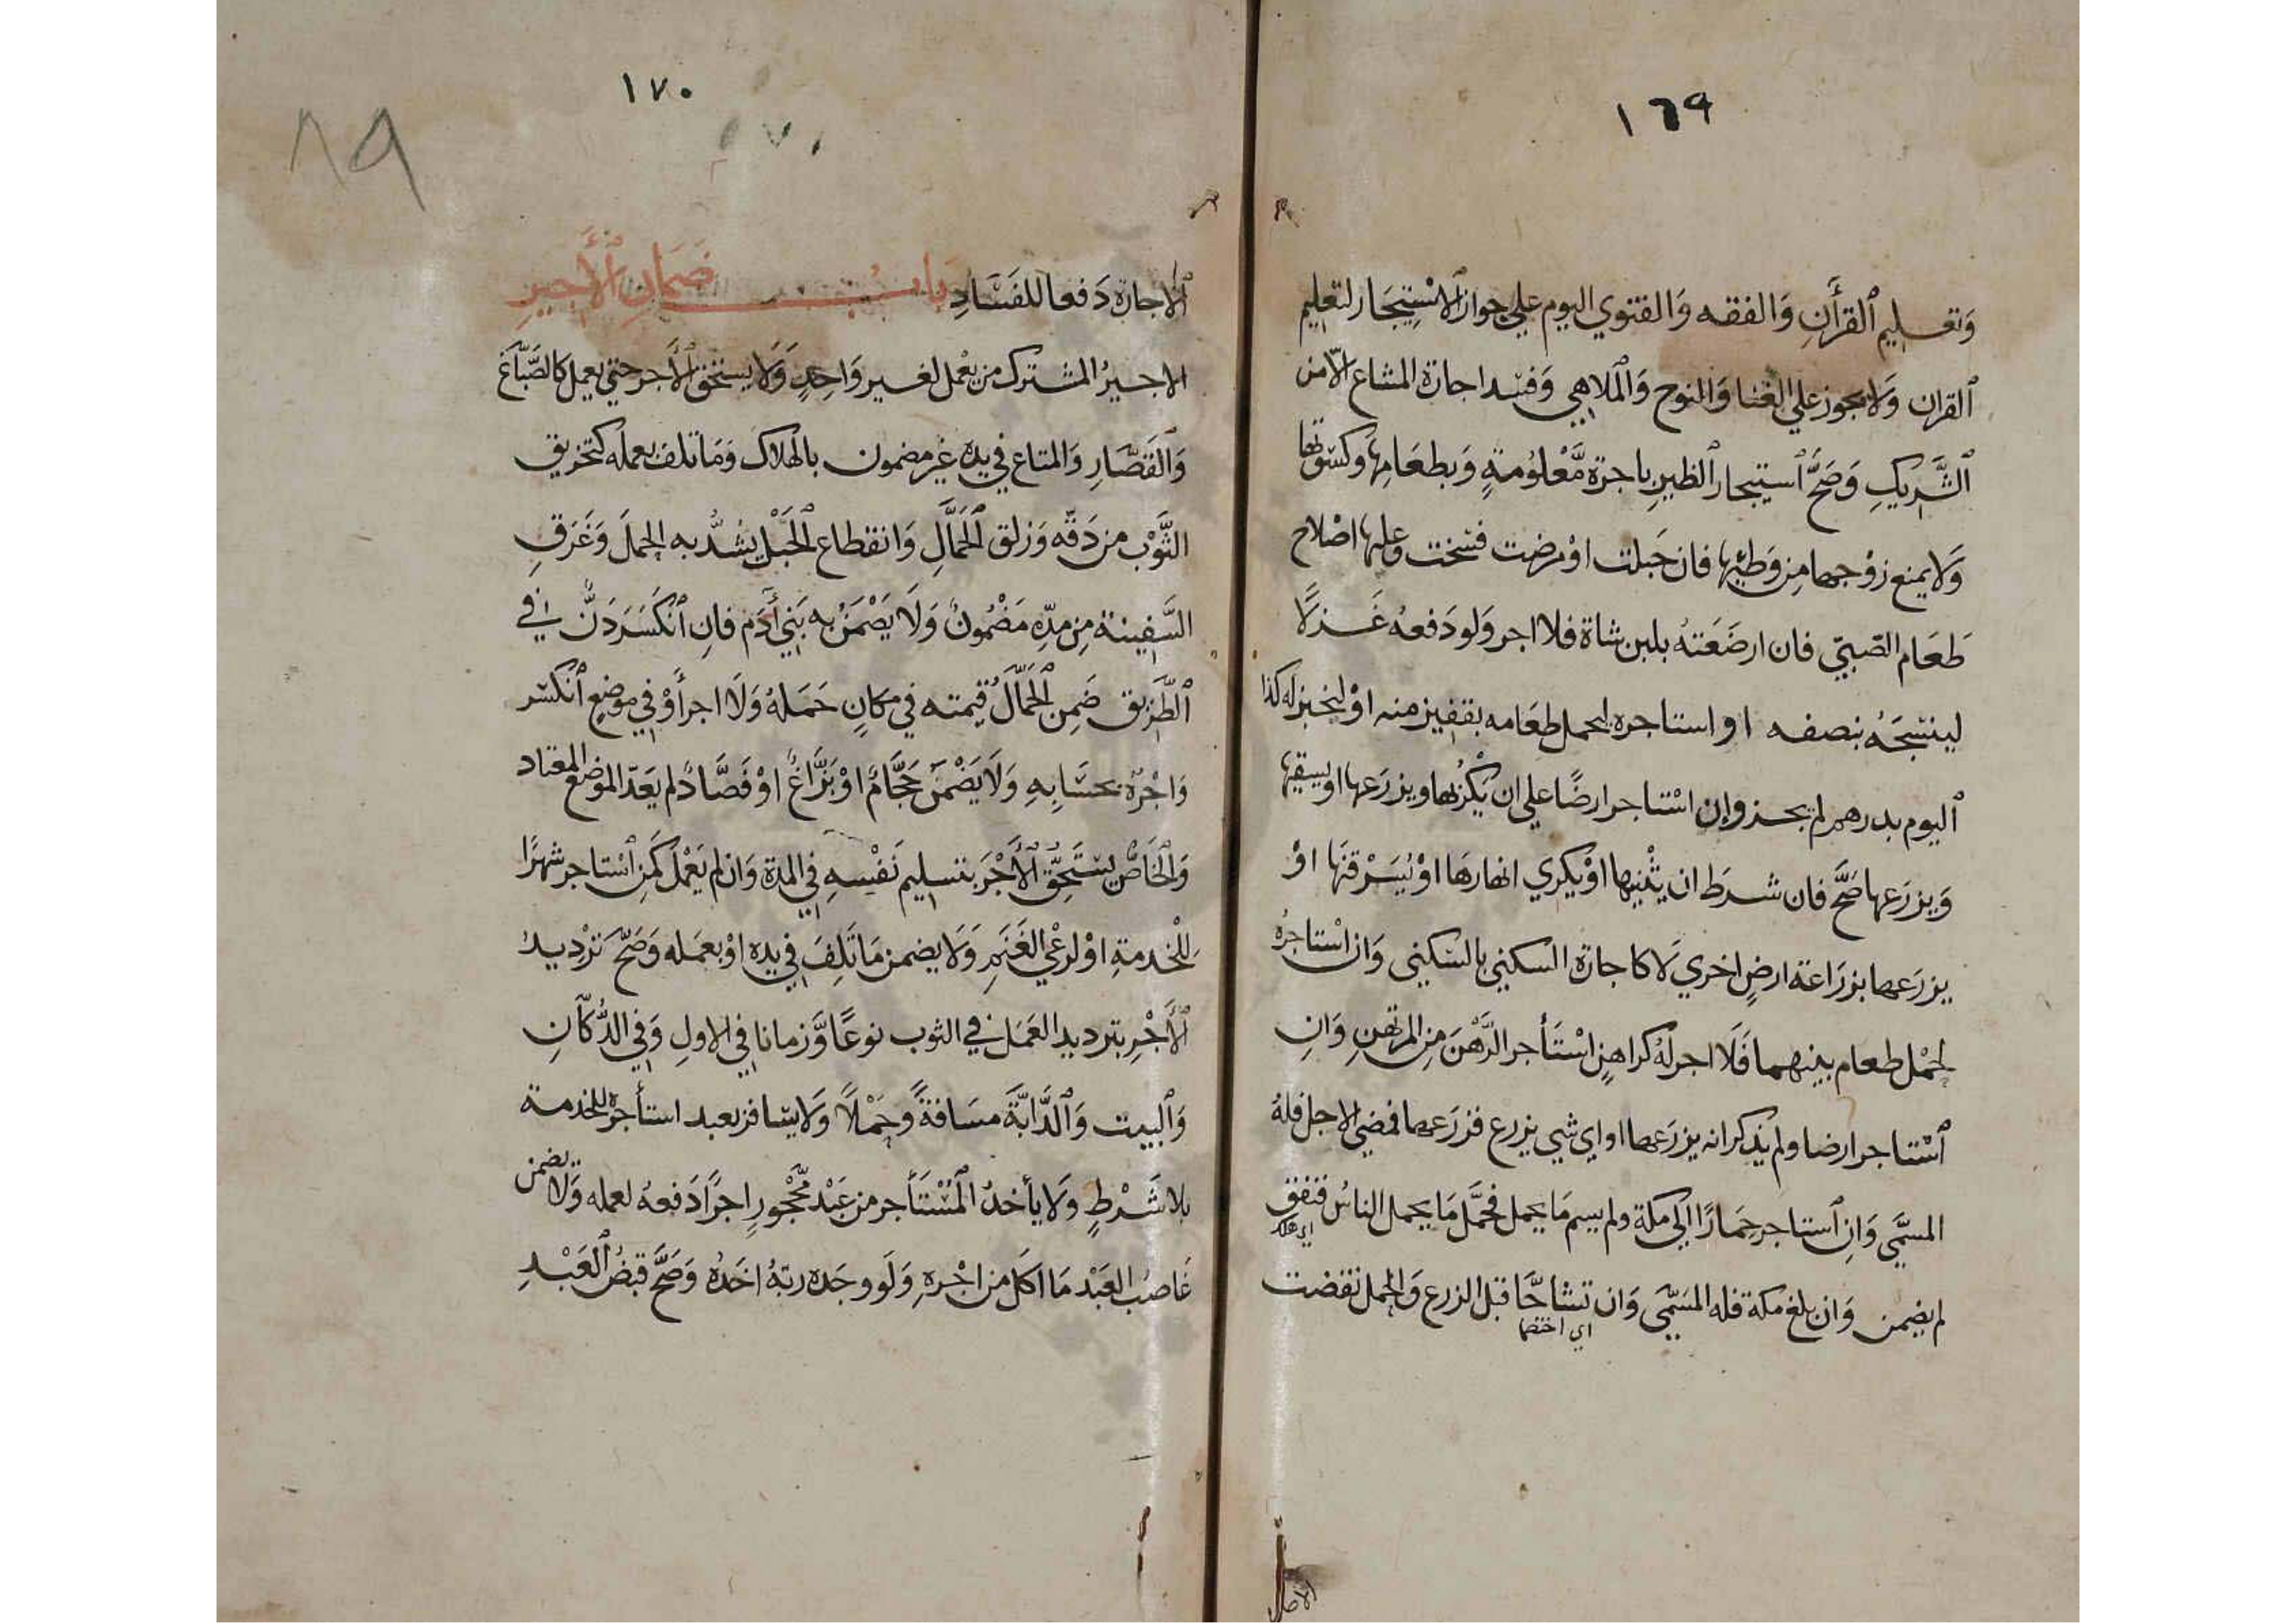 ١٦٩
وَتعليم ٱلقرأَنِ وَالفقه وَالفتوي اليوم علي جواز الاسْتِيجَار لتعليم
ٱلقران وَلا يجوز علي الغنا وَالنوح وَالملاهي وَفسد اجارة المشاع الّا من
الشَّرِيكِ وَصَحَّ ٱستيجار الظيرِ باجرَة مَّعْلوُمةٍ وَبطعَامِهَا وكسْوتها
وَلا يمنع زوْجها مِن وَطئِها فان حَبلت اوْ مرضت فسخت وعليها اصْلاح
طَعَام الصّبيّ فان ارضَعَتهُ بلبن شاة فلا اجر وَلو دَفعهُ غَزلًا
لينسِجَهُ بنصفه او استاجره ليحمل طعَامه بقفيز منه اوْ ليخبز له كذا
ٱليوم بدرهم لم يجز وإن اسْتاجر ارضًا علي ان يَكْرُبها ويزرَعها او يسقيها
وَيزرَعها صَحَّ فان شرَط ان يثْنيها اوْ يكري انهارهَا اوْ يُسَرْقنَهَا اوْ
يزرَعها بزرَاعة ارضٍ اخري لَا كاجارَة السكني بالسّكنى وَان اسْتاجرهُ
لحمْل طعام بينهما فَلَا اجر لهُ كراهنٍ اسْتَأجر الرَّهْنَ مِن المرتهنِ وَانِ
ٱسْتاجر ارضا ولم يذكر انه يزرَعها او اي شيي يزرع فزرَعها فمضي الاجل فلهُ
المسمَّي وَانِ ٱستاجر حِمارًا الي مكة ولم يسم مَا يحمل فحمَّل مَا يحمل الناسُ فنفق
اي هلك
لم يضمن وَان بلغ مكة فله المسَمّى وَان تشاحَّا قبل الزرع وَالحمل نقضت
اي اختصما
١٧٠
٨٩
ٱلاجارَة دَفعا للفَسَادِ بابُ ضَمَانِ ٱلأَجيرِ
الاجيرُ المشترك من يعْمل لغير وَاحِدٍ وَلَا يستحق الأَجر حتي يعمل كالصَّبَّاغ
وَالقَصَّارِ وَالمتاع في يده غير مضمون بالهلاك وَمَا تلف بعمله كتخريق
الثَّوْب من دَقّه وَزلق الحَمَّالِ وَانقطاع الحَبْل يشُدُّ به الحِملَ وَغَرَقِ
السَّفِينة مِن مدِّه مَضْمُونٌ وَلَا يَضْمَنُ به بَني أَدَم فانِ ٱنكَسَرَ دَنٌّ في
ٱلطَّرِيق ضَمِنَ الحَمّالُ قيمته في مكانِ حَمَلهُ وَلَا اجر أَوْ في موْضِعِ ٱنكسر
وَاجْرُهُ بحسَابِهِ وَلَا يَضْمَنُ حَجَّامٌ اوْ بَزَّاغٌ اوْ فَصَّادٌ لم يَعَدّ الموْضع المعتاد
وَالخَاصُّ يستَحِقُّ الأَجْرَ بتسليم نَفْسِهِ في المدة وَان لم يَعْمل كَمَنِ ٱسْتاجر شهرًا
للْخدمةِ اوْ لرعْي الغَنَمِ وَلَا يضمن مَا تَلِفَ في يده اوْ بعمَله وَصَحَّ ترْديدُ
الأَجْرِ بترديد العَمَل في الثوب نوعًا وَّزمانا في الاولِ وَفي الدُّكّانِ
وَالبيت وَالدَّابَّة مسَافةً وَحِمْلًا وَلا يسَافر بعبد استأجره للخدمة
بلا شَرْطٍ وَلا يأخذُ المُسْتَأجر من عَبْد مّحْجُورٍ اجرًا دَفعهُ لعمله وَلا يضمن
غَاصبُ العَبْد مَا اكل من اجْرهِ وَلَو وجَده ربّهُ اخذهُ وَصَحَّ قبضُ العَبْدِ